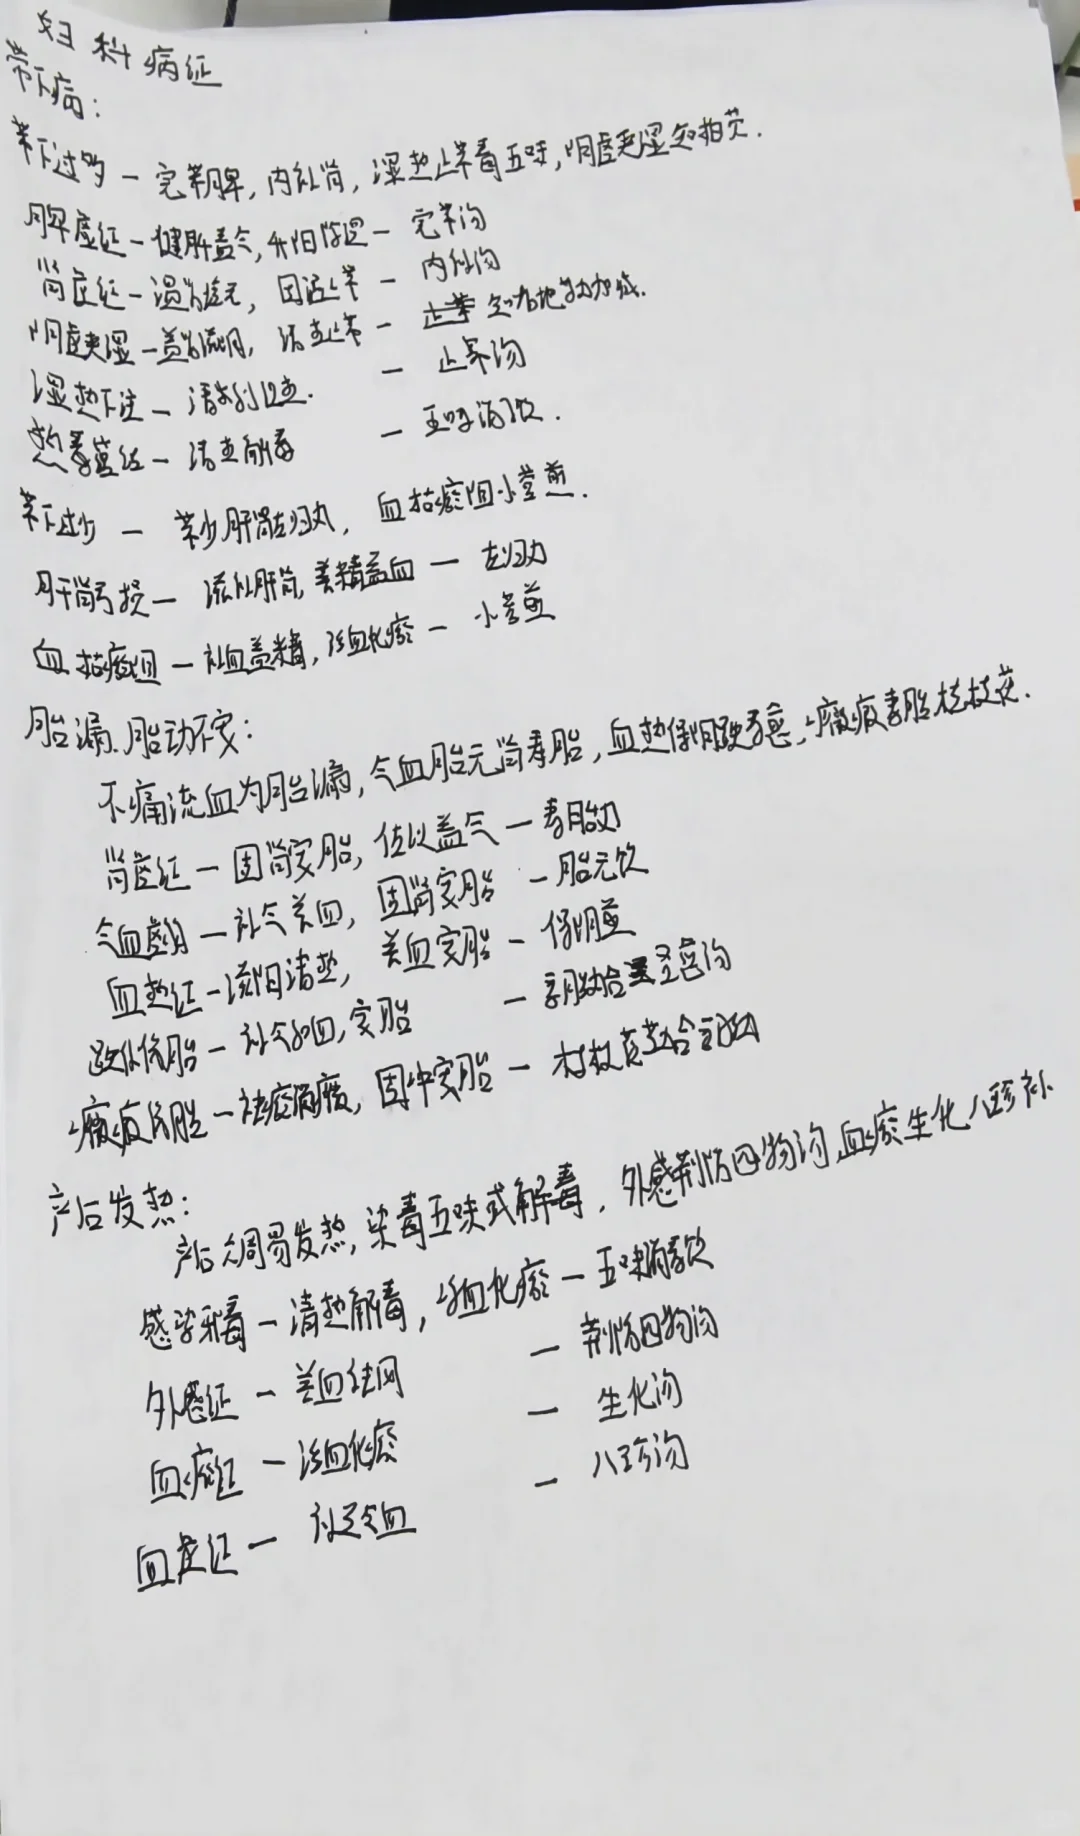 妇科病证
带下病:
带下过多 — 完带脾, 内补肾, 湿热止带毒五味, 阴虚夹湿知柏芡.
脾虚证 — 健脾益气, 升阳除湿 — 完带汤
肾虚证 — 温肾培元, 固涩止带 — 内补汤
阴虚夹湿 — 益肾滋阴, 清热止带 — 知柏地黄加减.
湿热下注 — 清热利湿. — 止带汤
热毒蕴结 — 清热解毒 — 五味消饮.
带下过少 — 带少肝肾左归丸, 血枯瘀阻小营煎.
肝肾亏损 — 滋补肝肾, 养精益血 — 左归丸
血枯瘀阻 — 补血益精, 活血化瘀 — 小营煎
胎漏、胎动不安:
不痛流血为胎漏, 气血胎元肾寿胎, 血热保阴跌圣愈, 癥瘕寿胎桂枝茯.
肾虚证 — 固肾安胎, 佐以益气 — 寿胎丸
气血虚弱 — 补气养血, 固肾安胎 — 胎元饮
血热证 — 滋阴清热, 养血安胎 — 保阴煎
跌仆伤胎 — 补气和血, 安胎 — 寿胎丸合圣愈汤
癥瘕伤胎 — 祛瘀消癥, 固冲安胎 — 桂枝茯苓合寿胎丸
产后发热:
产后周易发热, 染毒五味或解毒, 外感荆防四物汤, 血瘀生化八珍补
感染邪毒 — 清热解毒, 凉血化瘀 — 五味消毒饮
外感证 — 养血祛风 — 荆防四物汤
血瘀证 — 活血化瘀 — 生化汤
血虚证 — 补益气血 — 八珍汤